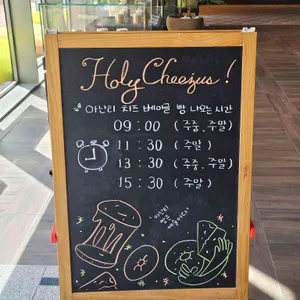 Holy Cheezus!
아난티 치즈 베이글 빵 나오는 시간
09:00 (주중, 주말)
11:30 (주말)
13:30 (주중, 주말)
15:30 (주말)
아난티